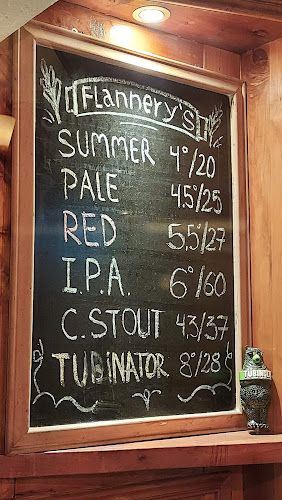 FLannery'S
SUMMER 4°/20
PALE 4.5°/25
RED 5.5°/27
I.P.A. 6°/60
C.STOUT 4.3/37
TUBiNATOR 8°/28